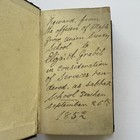 Reward from
the officers of
Union Sunday
School to
Elizabeth
in consideration
of Services rendered
as sabbath
School Teacher
September 25th
1852